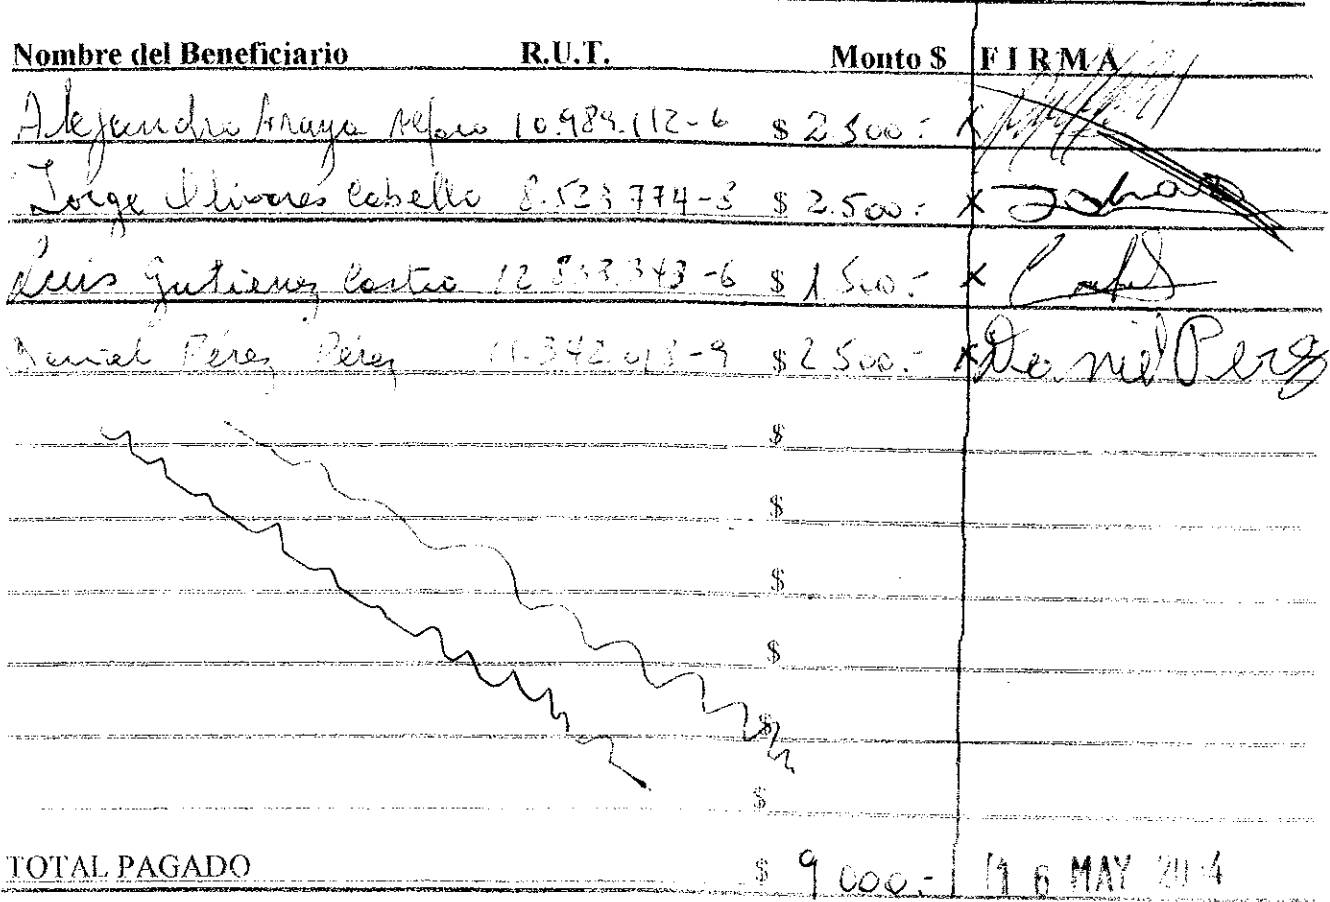 Nombre del Beneficiario R.U.T. Monto $ FIRMA
Alejandro Araya 10.989.112-6 $ 2.500.-
Jorge Olivares Cabello 8.523.774-3 $ 2.500.- x
Luis Gutierrez Castro 12.833.343-6 $ 1.500.- x
Daniel Pérez Pérez 11.342.013-9 $ 2.500.- x Daniel Perez
$
$
$
$
$
$
TOTAL PAGADO $ 9.000.- 16 MAY 2014